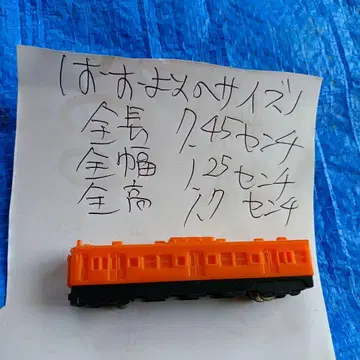 おおよそのサイズ
全長 7.45センチ
全幅 1.25センチ
全高 1.7センチ